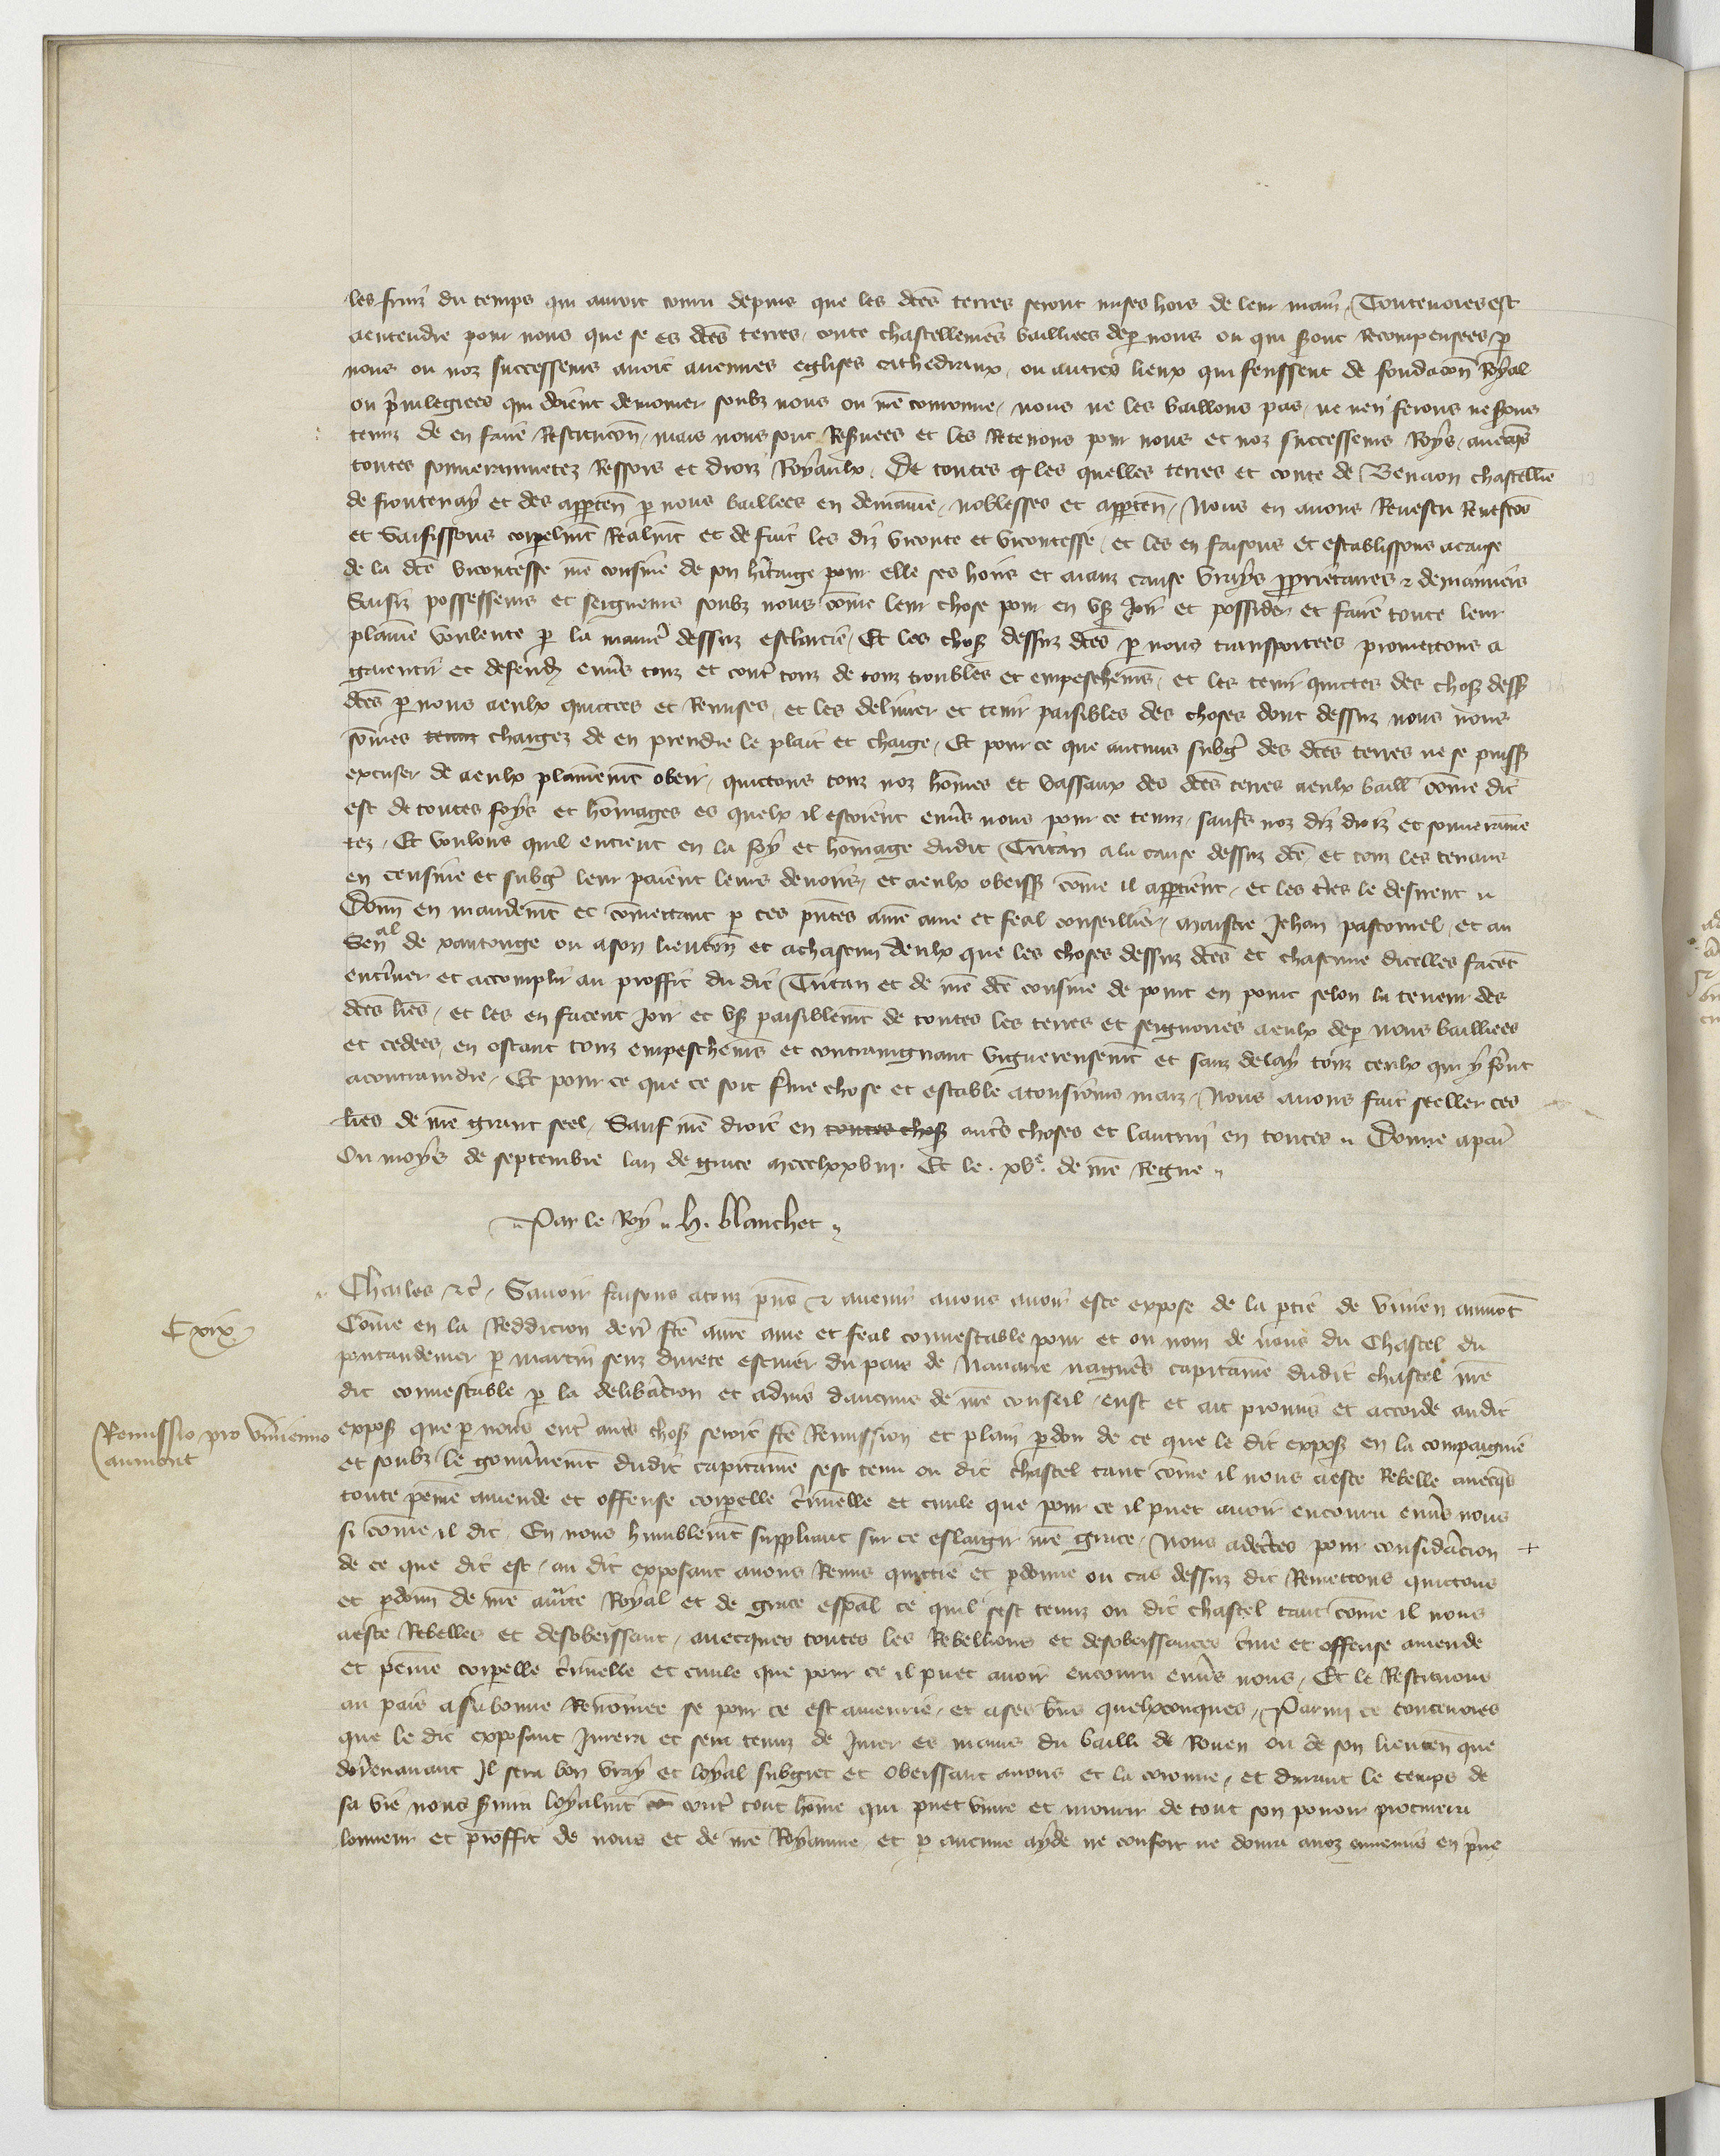 les fruiz du temps qui auroit couru depuis que les dc̄es terres seront mises hors de leur main. Toutevoies est
a entendre pour nous que se es dc̄es terres conte chastelleniēs baillees de p nous ou qui sront recompensees p
nous ou noz successeurs auoit aucunes eglises cathedraux ou autres lieux qui feussent de fondacōn Royal
ou p̄uilegiees qui doient demourer soubz nous ou nr̄e couronne, nous ne les baillons pas ne nen ferons ne srons
tenuz de en faire restitucōn, mais nous sont reseruees et les retenons pour nous et noz successeurs Roys, auecqs
toutes souuerainnetez ressors et droiz Royaulx. De toutes les quelles terres et conte de Benaon chastelliē
de frontenay et des apptēn p nous baillees en demaine, noblesses et apptēn, Nous en auons reuestu reuestōs
et saisissons corpelmēt realmēt et de fait les diz viconte et vicontesse, et les en faisons et establissons a cause
de la dc̄e vicontesse nr̄e cousine de son h̄itaige pour elle ses hoirs et aianz cause vrays pprietaires et demainiers
Saisiz possesseurs et seigneurs soubz nous cōme leur chose pour en vser joir et possider et faire toute leur
plaine voulente p la manier̄ dessuz esclarcie, Et les choses dessuz dc̄es p nous transportees promettons a
garentir et defendre enūs touz et contr̄ touz de touz troubles et empeschemēs, et les tenir quictes des choses dess
dc̄es p nous a eulx quictees et remises, et les deliurer et tenir paisibles des choses dont dessuz nous nous
sōmes tenuz chargez de en prendre le plait et charge, Et pour ce que aucuns subgēz des dc̄es terres ne se puiss
excuser de a eulx plainemēt obeir, quictons touz noz hōmes et vassaux des dc̄es terres a eulx baill cōme dit
est de toutes foys et hōmages es quelx il estoient enūs nous pour ce tenuz, saufs noz diz droiz et souueraine
tez, Et voulons quil entrent en la foy et hōmage dudit Tritan a la cause dessuz dc̄e et touz les tenans
en censiue et subgēz leur paient leurs deuoirs, et a eulx obeiss cōme il appartient, et les tr̄es le desirent
Donn̄ en mandemēt et cōmettant p ces pn̄tes a nr̄e ame et feal conseillier maistre Jehan pastourel, et au
Senal de xantonge ou a son lieutēn et a chascun deulx que les choses dessuz dc̄es et chascune dicelles facēt
ent̄iner et accomplir au proffit du dit Tritan et de nr̄e dc̄e cousine de point en point selon la teneur des
dc̄es lr̄es, et les en facent joir et vser paisiblemēt de toutes les terres et seignories a eulx de p nous baillees
et cedees, en ostant touz empeschemēs et contraignant viguereusemēt et sanz delay touz ceulx qui y srōnt
a contraindre, Et pour ce que ce soit ferme chose et estable a tousiours mais, Nous auons fait seeller ces
lr̄es de nr̄e grant seel, Sauf nr̄e droit en toutes choses autr̄s choses et lautrui en toutes. Donne a par̄
Ou moys de septembre lan de grace mccclxxviii. Et le .xve. de nr̄e Regne.
Par le Roy. H. blanchet.
Charles etc̄, Sauoir faisons a touz pn̄s et auenir a nous auoir este expose de la ptie de vimien aumōt
Cxix
Cōme en la Reddicion derr̄ fc̄e a nr̄e ame et feal connestable pour et ou nom de nous du Chastel du
pontaudemer p martin senz diurete escuier du pais de Nauarre nagueres capitaine dudit chastel nr̄e
dit connestable p la delib̄acion et aduis daucuns de nr̄e conseil, eust et ait promis et accorde audit
Remissio pro vimieno
aumont
expos que p nous entr̄ autr̄s choses seroit fc̄e Remission et plain pdon de ce que le dit expos en la compaignie
et soubz le gouūnemēt dudit capitaine sest tenu ou dit chastel tant cōme il nous a este Rebelle auecqs
toute peine amende et offense corpelle c̄iminelle et ciuile que pour ce il puet auoir encouru enūs nous
si cōme il dit, En nous humblemēt suppliant sur ce eslargir nr̄e grace, Nous adec̄tes pour considācion
de ce que dit est, au dit exposant auons Remis quictie et pdonne ou cas dessuz dit Remettons quictons
et pdonn̄ de nr̄e aut̄ite Royal et de grace esp̄al ce quil sest tenuz ou dit chastel tant cōme il nous
a este Rebelles et desobeissant, auecques toutes les Rebellions et desobeissances c̄ime et offense amende
et peine corpelle c̄iminelle et ciuile que pour ce il puet auoir encouru enūs nous, Et le Restituons
au pais a sa bonne Renōmee se pour ce est amenrie, et a ses bn̄s quelxconques, Parmi ce toutevoies
que le dit exposant jurera et sera tenuz de jurer es mains du bailli de Rouen ou de son lieutēn que
dor̄enauant Il sera bon vray et loyal subgiet et obeissant a nous et la coronne, et durant le temps de
sa vie nous s̄uira loyalmēt contr̄ tout hōme qui puet viure et mourir de tout son pouoir procurera
lonneur et proffit de nous et de nr̄e Royaume, et p aucune ayde ne confort ne donra a noz ennemis en p̄ue